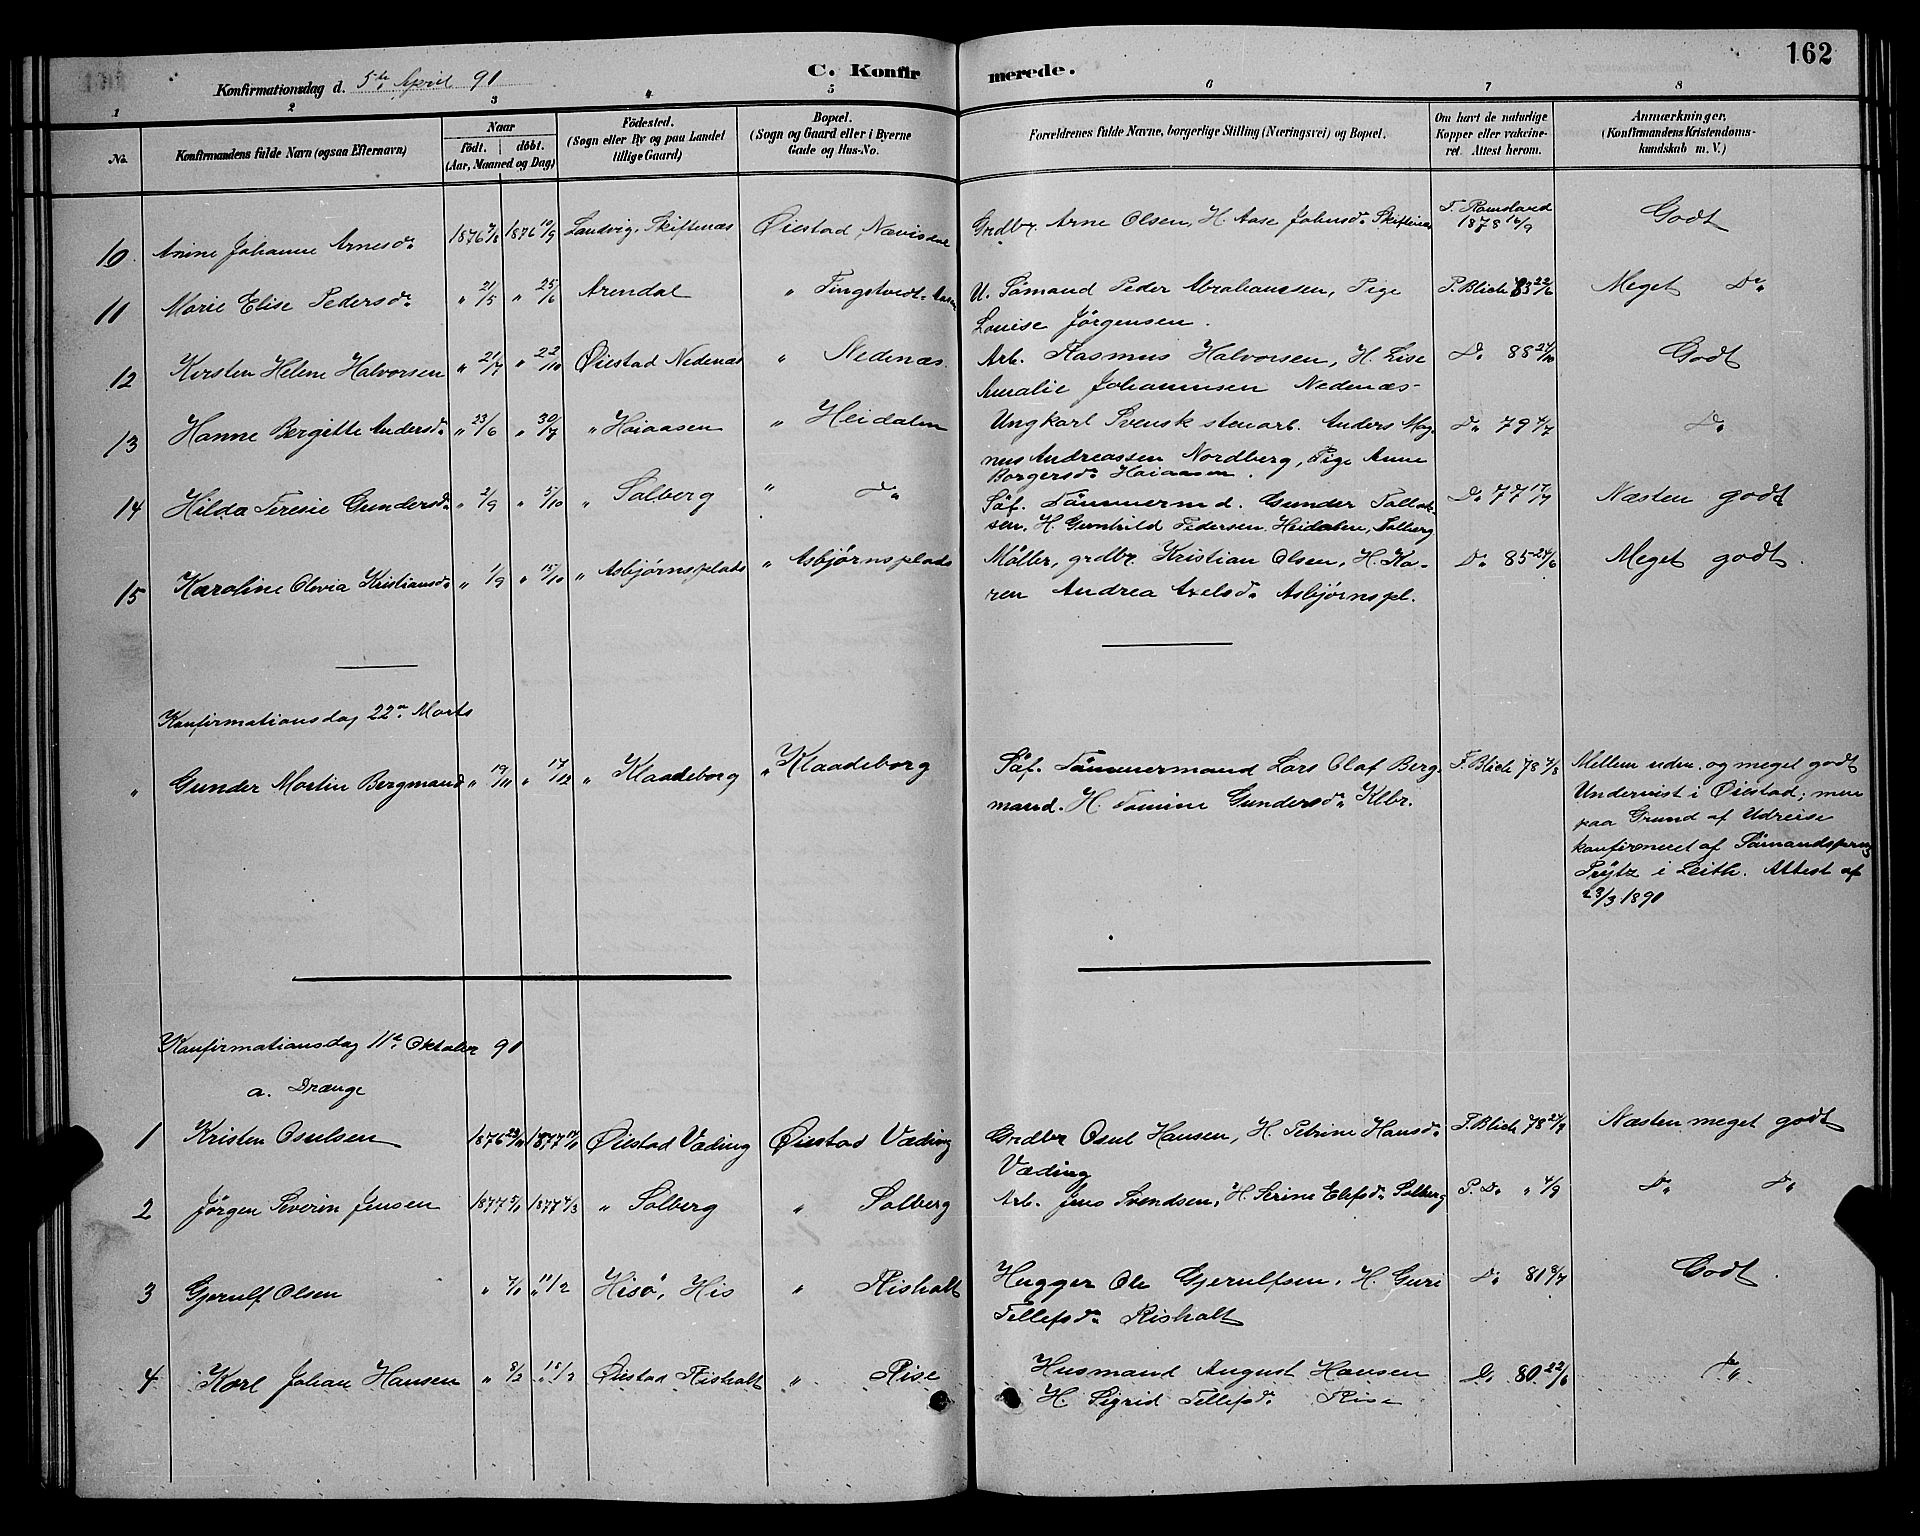 162
C. Konfirmerede.
Konfirmationsdag d. 5te April 91
1 2 3 4 5 6 7 8
No.
Konfirmandens fulde Navn (ogsaa Efternavn)
Naar
födt. döbt.
(Aar, Maaned og Dag)
Födested.
(Sogn eller By og paa Landet
tillige Gaard)
Bopæl.
(Sogn og Gaard eller i Byerne
Gade og Hus-No.
Forældrenes fulde Navne, borgerlige Stilling (Næringsvei) og Bopæl.
Om havt de naturlige
Kopper eller vakcine-
ret. Attest herom.
Anmærkninger.
(Konfirmandens Kristendoms-
kundskab m. V.)
10 Anine Johanne Arnesdr 1876 1876 10/9 Landvig, Skiftenæs Øiestad Nævisdal Grdbr. Arne Olsen, H. Aase Johnsdr Skiftenæs 1878 16/9 Godt
11 Marie Elise Pedersdr " 21/5 " 25/6 Arendal " Tingstvedt Sømand Peder Abrahamsen, Pige
Louise Jørgensen. Blich 83 22/6 Meget Do
12 Kirsten Helene Halvorsen " 21/7 " 22/10 Øiestad Nedenæs " Nedenæs. Arb. Rasmus Halvorsen, H. Lise
Amalie Johannesen Nedenæs Do 88 Godt
13 Hanne Bergitte Andersdr " 23/6 " 30/7 " Haiaasen " Heidalen Ungkarl Svensk stenarb. Anders Mag-
nus Andreassen Nordberg, Pige Anne
Borgersdr Haiaasen. Do 79 4/7 Do
14 Hilda Teresie Gundersdr " 2/9 " 5/10 " Solberg " Do Søf. Tømmermd. Gunder Tollak-
sen, H. Gunhild Pedersen, Heidalen, Solberg Do 77 17/7 Næsten godt
15 Karoline Olovia Kristiansdr " 1/9 " 15/10 " Asbjørnsplads " Asbjørnsplads Møller, grdbr. Kristian Olsen, H. Ka-
ren Andrea Axelsdr Asbjørnspl. Do 85 24/6 Meget godt.
Konfirmationsdag 22de Marts
" Gunder Martin Bergmand " 19/11 " 17/12 " Klaadeborg " Klaadeborg Søf. Tømmermand Lars Olaf Berg-
mand. H. Tomine Gundersdr Klbr. Blich 78 7/8 Mellem udm. og meget godt
Undervist i Øiestad; men
paa Grund af Udreise
konfirmeret af
i Leith. Attest af
23/3 1890
Konfirmationsdag 11te Oktober 91
a. Drænge
1 Kristen Osulsen 1876 1877 Øiestad Væding Øiestad Væding Grdbr Osul Hansen, H. Petrine Hansdr
Væding Blich 78 Næsten meget godt
2 Jørgen Severin Jensen 1877 1877 4/3 " Solberg " Solberg Arb. Jens Svendsen, H. Serine Elefsdr Solberg Do " 4/9 Do Do
3 Gjerulf Olsen " " 11/2 Hisö, His " Risholt Hugger Ole Gjerulfsen, H. Guri
Tellefsdr Risholt Do 81 8/7 Godt.
4 Karl Johan Hansen " 8/2 " Øiestad Risholt " Rise Husmand August Hansen
H. Sigrid Tellefsdr Rise Do 80 22/6 Do